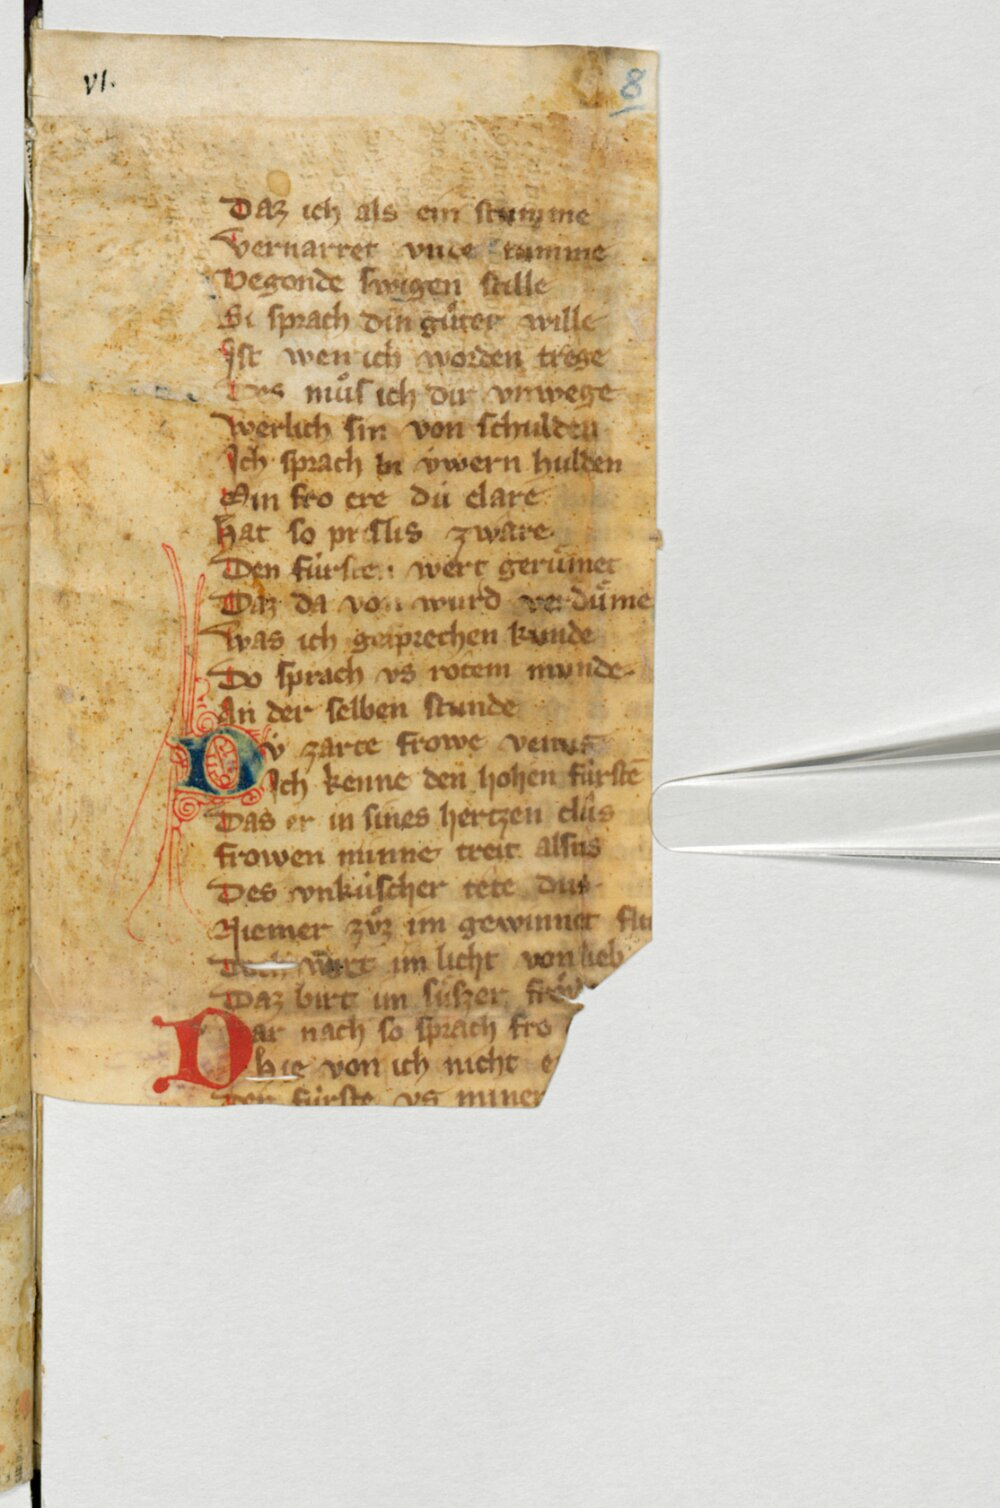 VI.
8
Daz ich als ein stumme
Vernarret vnde tumme
Begonde swigen stille
Si sprach din gůter wille
Ist wen ich worden trege
Des můs ich dir vnwege
Werlich sin von schulden
Ich sprach in v́wern hulden
Min fro ere dú clare
Hat so prislis zware
Den fúrsten wert gerůmet
Daz da von wurd verdůme
Was ich gesprechen kunde
Do sprach vs rotem munde
An der selben stunde
Dv́ zarte frowe venus
Ich kenne den hohen fúrste
Das er in sines hertzen clus
Frowen minne treit alsus
Des vnkúscher tete dus
Niemer zůz im gewinnet flu
Doch wirt im licht von lieb
Daz birt im suszer
Dar nach so sprach fro
Hie von ich nicht e
Den fúrste vs miner